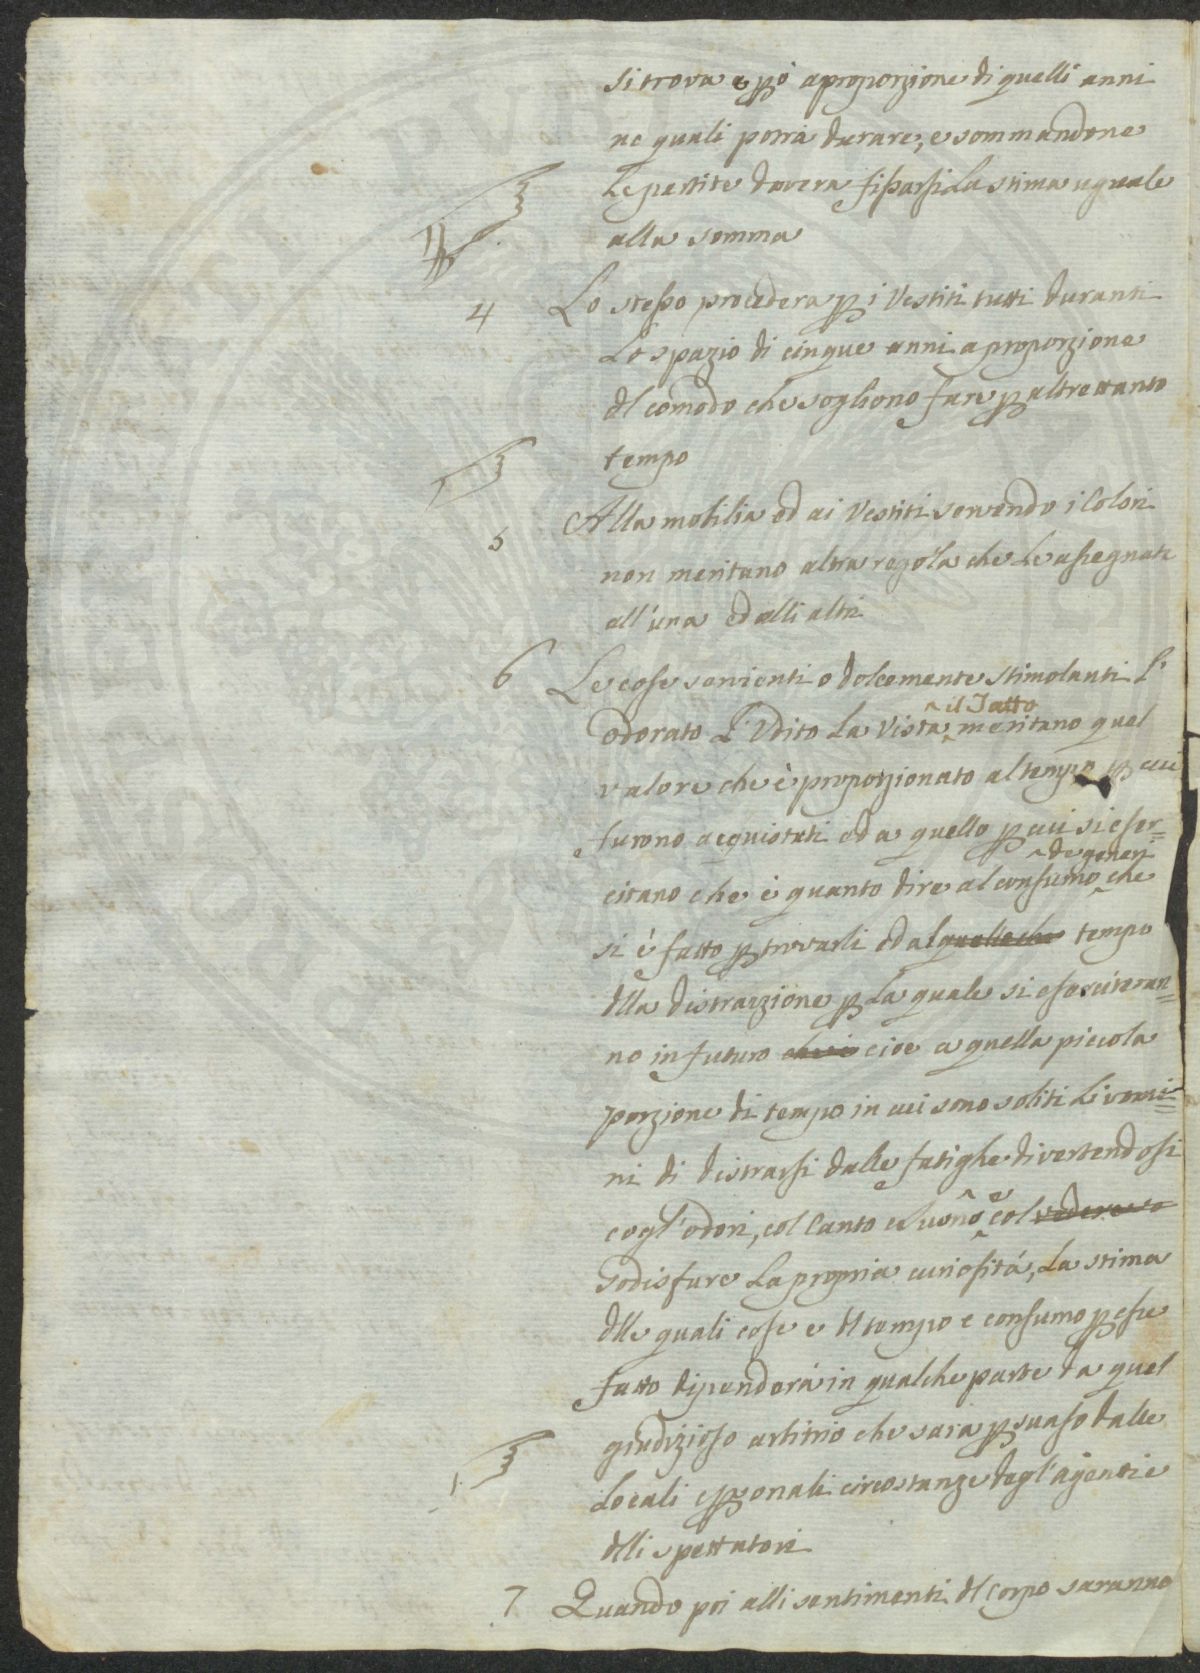 si trova e pò a proporzione di quelli anni
ne quali potrà durare, e sommandone
Le partite dovera fissarsi La stima uguale
alla somma
4 Lo stesso procederà p i Vestiti tutti duranti
Lo spazio di cinque anni a proporzione
dl comodo che sogliono fare p altrettanto
tempo
5 Alla mobilia ed ai Vestiti servendo i Colori
non meritano altra regola che Le assegnate
all'una ed alli altri
6 Le cose servienti o dolcemente stimolanti L'
odorato L'Udito La Vista ^il Tatto meritano quel
valore che è proporzionato al tempo p cui
furono acquistati ed a quello p cui si eser=
citano che è quanto dire al consumo ^de generi che
si è fatto p trovarli ed al quello che tempo
dlla distrazzione p La quale si eserciteran=
no in futuro cioe a quella piccola
porzione di tempo in cui sono soliti Li uomi=
ni di distrarsi dalle fatighe divertendosi
cogl'odori, col Canto e L suono ^e col vedere o
sodisfare La propria curiosità, La stima
dlle quali cose e dl tempo e consumo p esse
fatto dipenderà in qualche parte da quel
giudizioso arbitrio che sara psuaso dalle
Locali e psonali circostanze degl'agenti e
dlli spettatori
7 Quando poi alli sentimenti dl Corpo saranno